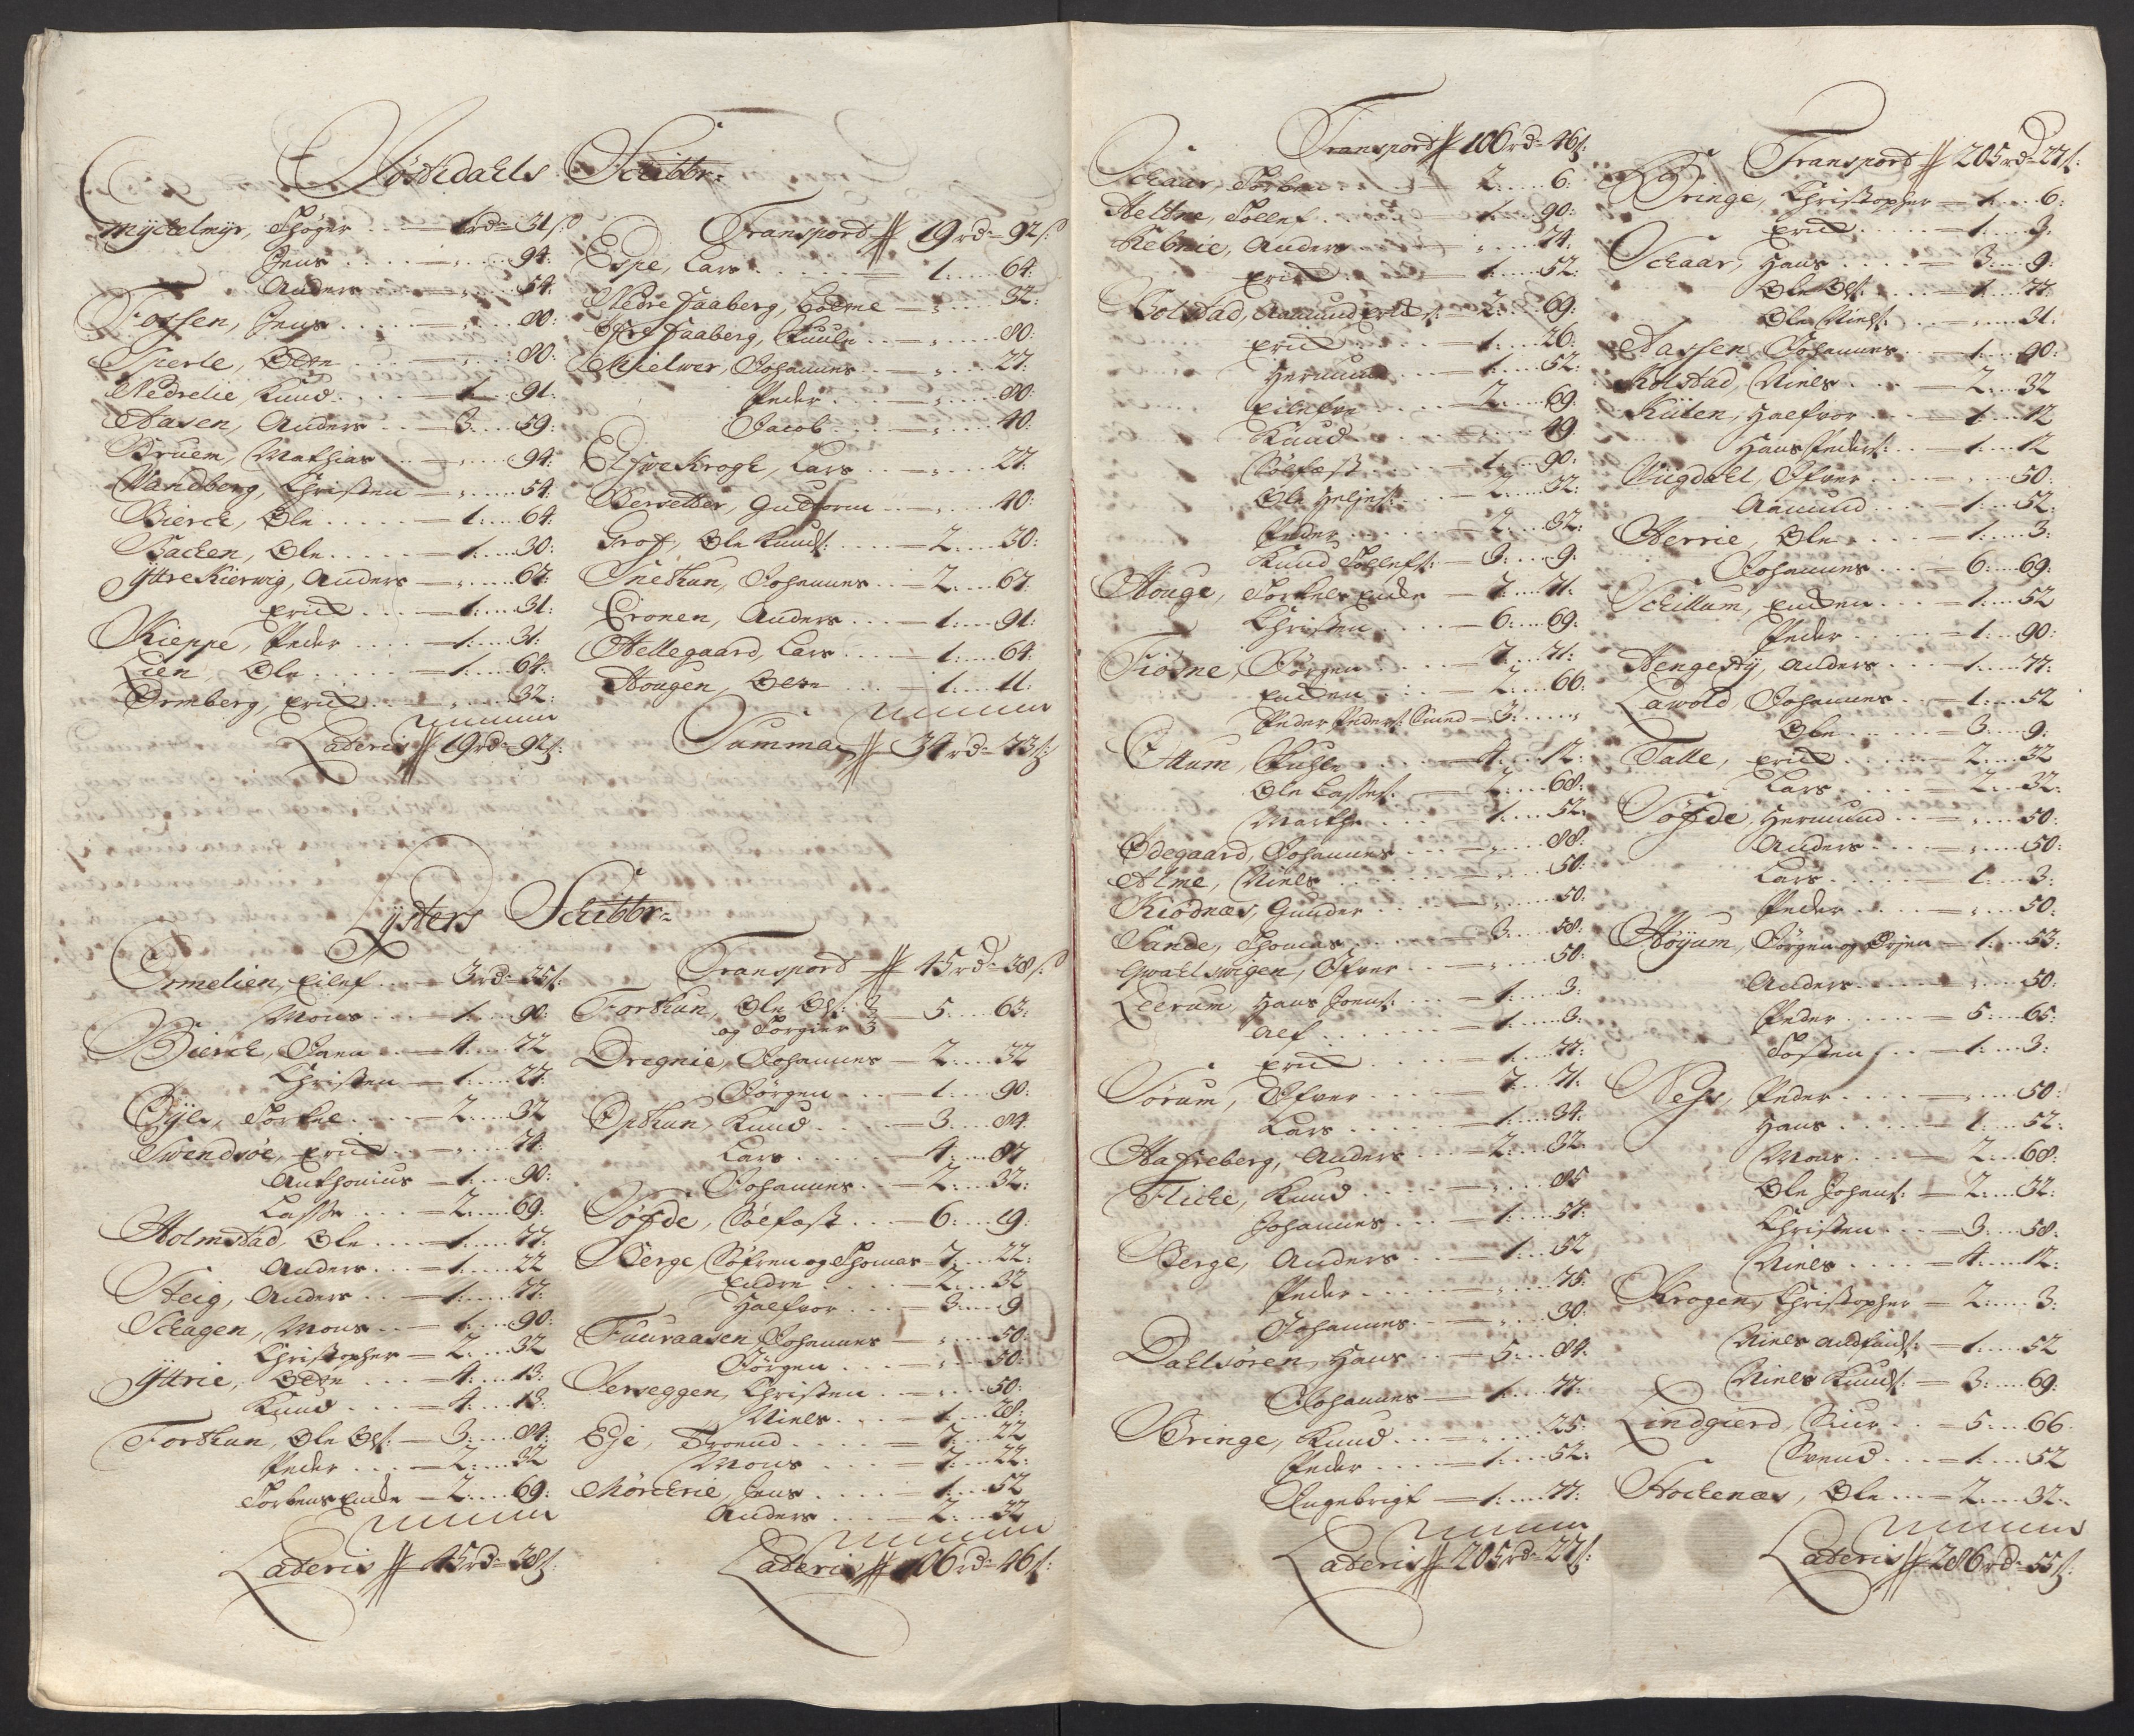 Jöstedahls Schibbr:
Myckelmyr, Thøger ... 1 rd= 31 s:
Jens ... „ ... 94:
Anders ... „ ... 54:
Fossen, Jens ... „ ... 80:
Sperle, Ottre ... „ ... 80:
Nedrelie, Knud ... 1 ... 91:
Aasen, Anders ... 3 ... 59:
Bruem, Mathias ... „ ... 94:
Wandberg, Christen ... „ ... 54:
Bierck, Ole ... 1 ... 64:
Backen, Ole ... 1 ... 30:
Yttre Kierwig, Anders ... „ ... 67:
Erich ... 1 ... 31:
Kieppe, Peder ... 1 ... 31:
Lien, Ole ... 1 ... 64:
Ormberg, Erich ... „ ... 32:
Lateris 19 rd= 92 s:
Transport 19 rd= 92 s:
Espe, Lars ... 1 ... 64:
Nedre Faaberg, ... „ ... 32:
Faaberg, ... „ ... 80:
Mielwer, Johannes ... „ ... 27:
Peder ... „ ... 80:
Jacob ... „ ... 40:
Elfwekrogh, Lars ... „ ... 27:
Bersetter, Gutorm ... „ ... 40:
Grof, Ole Knuds: ... 2 ... 30:
Snethun, Johannes ... 2 ... 67:
Cronen, Anders ... 1 ... 91:
Hellegaard, Lars ... 1 ... 64:
Hougen, ... 1 ... 11:
Summa 34 rd= 73 s:
Lysters Schibbr:
Ormelien, Eilef ... 3 rd= 35 s:
Mons ... 1 ... 90:
Bierck, Joen ... 4 ... 72
Christen ... 1 ... 27:
Torkel ... 2 ... 32
Swendsøe, Erich ... „ ... 74:
Anthonius ... 1 ... 90:
Lasse ... 2 ... 69:
Holmstad, Ole ... 1 ... 77:
Anders ... 1 ... 22
Heig, Anders ... 1 ... 77:
Schagen, Mons ... 1 ... 90:
Christopher ... 2 ... 32
Yttrie, ... 4 ... 13:
Knud ... 4 ... 13:
Forthun, Ole Ols: ... 3 ... 84:
Peder ... 2 ... 32
Torbens Encke ... 2 ... 69:
Lateris 45 rd= 38 s:
Transport 45 rd= 38 s:
Forthun, Ole Ols: og Torgier ... 5 ... 63:
Dregnie, Johannes ... 2 ... 32
Jörgen ... 1 ... 90:
Opthun, Knud ... 3 ... 84:
Lars ... 4 ... 87
Johannes ... 2 ... 32:
Söfde, Sölfast ... 6 ... 19:
Berge, Söfren og Thomas ... 7 ... 22:
Endre ... 2 ... 32
Halfvor ... 3 ... 9
Fuuraasen, Johannes ... „ ... 50:
Jörgen ... „ ... 50:
Serveggen, Christen ... „ ... 50:
Niels ... 1 ... 28:
Eje, Troend ... 7 ... 22
Mons ... 7 ... 22:
Mörckrie, Jens ... 1 ... 52
Anders ... 2 ... 32
Lateris 106 rd= 46 s:
Transport 106 rd= 46 s:
Schaar, Torben ... 2 ... 6:
Heltne, Tollef ... 1 ... 90:
Kebnie, Anders ... „ ... 74:
Erich ... 1 ... 52:
Bolstad, Aamund Ericks: ... 2 ... 69:
Erich ... 1 ... 26:
Hermund ... 1 ... 52:
... 2 ... 69:
Knud ... „ ... 49:
Sölfast ... 1 ... 90:
Ole Heljes: ... 2 ... 32:
Peder ... 2 ... 32:
Knud Tollefs: ... 3 ... 9:
Houge, Torkels Encke ... 7 ... 71:
Christen ... 6 ... 69:
Fiösne, Jörgen ... 7 ... 71:
Encken ... 2 ... 66:
Peder Peders: Smed ... 3 ... „
Ottum, ... 4 ... 12:
Ole Lasses: ... 2 ... 68:
Marthe ... 1 ... 52:
Ödegaard, Johannes ... „ ... 88:
Alme, Niels ... „ ... 50:
Kiödnæs, Gunder ... „ ... 50:
Sande, Thomas ... 3 ... 58:
Qwalswigen, Ifver ... „ ... 50:
Leerum, Hans Joens: ... 1 ... 3:
Alf ... 1 ... 3:
Erich ... 1 ... 77:
Sörum, Ifver ... 7 ... 71:
Lars ... 1 ... 34:
Hafreberg, Anders ... 2 ... 32
Flicke, Knud ... „ ... 85
Johannes ... 1 ... 57:
Berge, Anders ... 1 ... 52
Peder ... „ ... 75:
Johannes ... „ ... 30:
Dahlsören, Hans ... 5 ... 84:
Johannes ... 1 ... 77:
Bringe, Knud ... „ ... 25:
Peder ... 1 ... 52:
Engebrigt ... 1 ... 77:
Lateris 205 rd= 27 s:
Transport 205 rd= 27 s:
Bringe, Christopher ... 1 ... 6:
Erich ... 1 ... 3:
Schaar, Hans ... 3 ... 9:
Ole Ols: ... 1 ... 77:
Ole Niels: ... „ ... 31:
Aassen, Johannes ... 1 ... 90:
Kolstad, Niels ... 2 ... 32
Kiiten, Halfvor ... 1 ... 12
Hans Peders: ... 1 ... 12
Wigdahl, Ifver ... „ ... 50:
Aamund ... 1 ... 52:
Herrie, Ole ... 1 ... 3:
Johannes ... 6 ... 69:
Schillum, Encken ... 1 ... 52
Peder ... 1 ... 90:
Hengesty, Anders ... 1 ... 77:
Lawold, Johannes ... 1 ... 52
Ole ... 3 ... 9:
Talle, Erich ... 2 ... 32
Lars ... 2 ... 32:
Söfde, Hermund ... „ ... 50:
Anders ... „ ... 50:
Lars ... 1 ... 3:
Peder ... „ ... 50:
Höyum, Jörgen og Örjen ... 1 ... 53:
Anders ... „ ... 50:
Peder ... 5 ... 65:
Tosten ... 1 ... 3:
Ness, Peder ... „ ... 50:
Hans ... 1 ... 52:
Mons ... 2 ... 68:
Ole Johans: ... 2 ... 32:
Christen ... 3 ... 58:
Niels ... 4 ... 12:
Krogen, Christopher ... 2 ... 3:
Niels ... 1 ... 52
Niels Knuds: ... 3 ... 69:
Lindgierd, Siur ... 5 ... 66
Svend ... 1 ... 52
Hockenæs, Ole ... 2 ... 32:
Lateris 286 rd= 55 s: